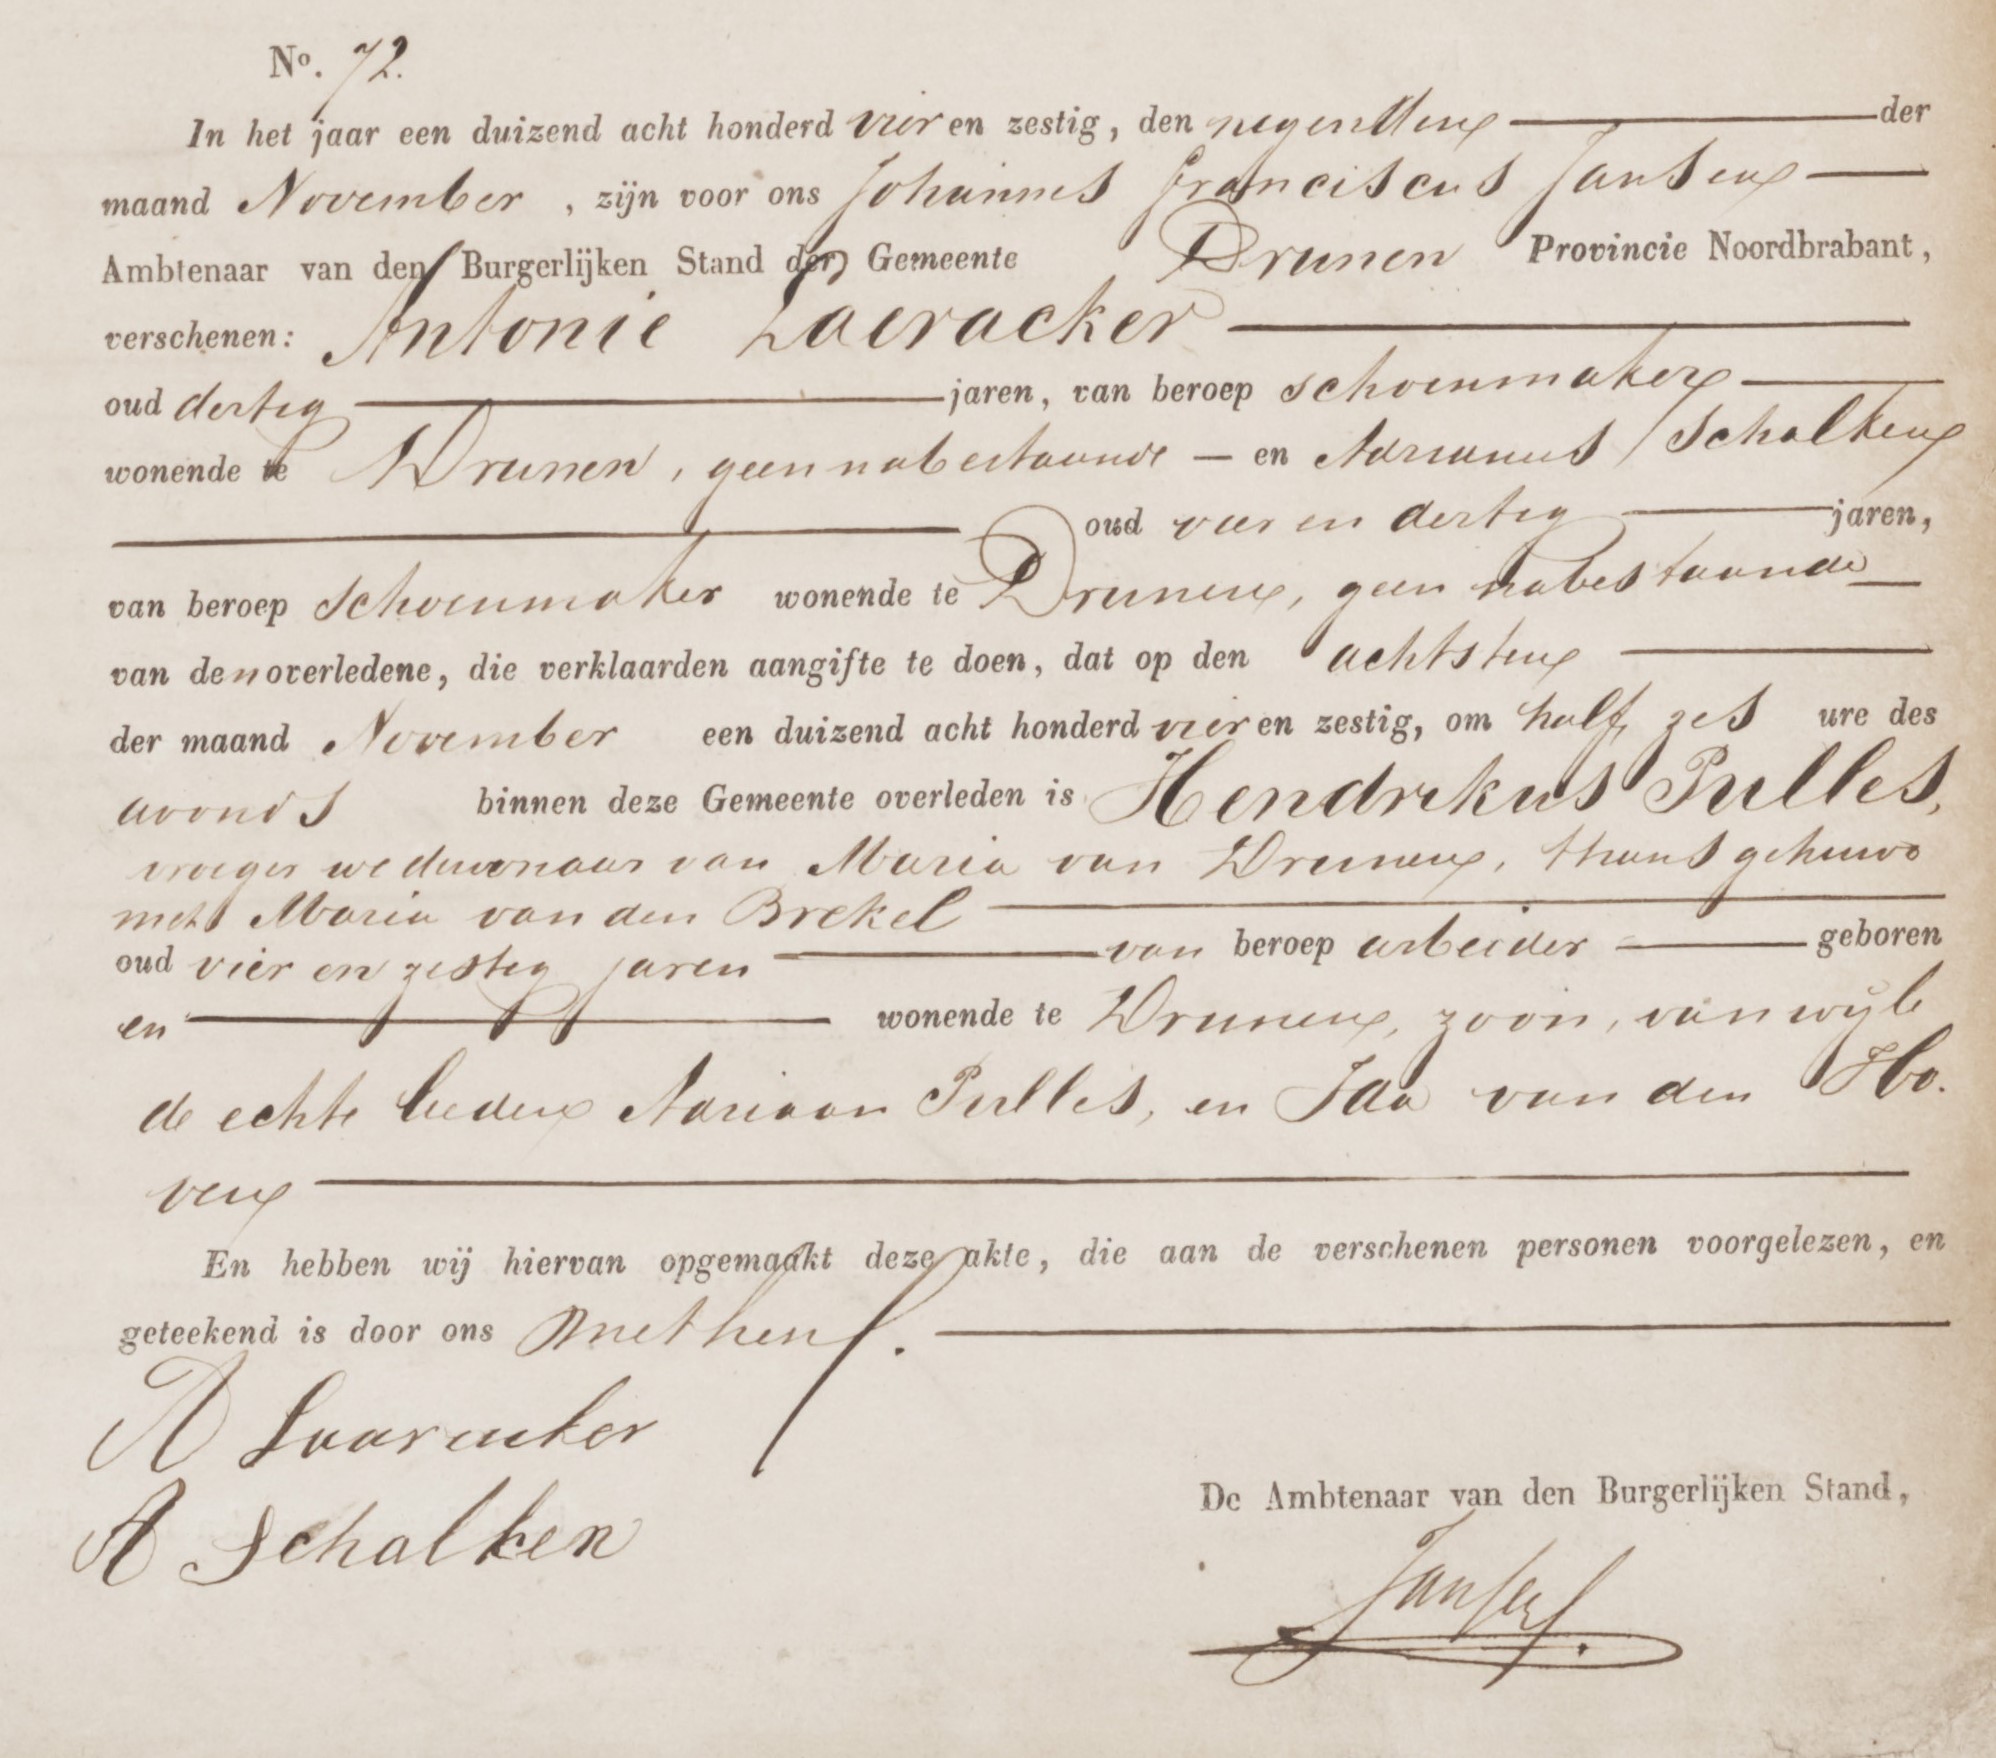 No. 72.
In het jaar een duizend acht honderd vier en zestig, den negensten der
maand November, zijn voor ons Johannes Franciscus Jansen
Ambtenaar van den Burgerlijken Stand der Gemeente Drunen Provincie Noordbrabant,
verschenen: Antonie Laeracker
oud dertig jaren, van beroep schoenmaker
wonende te Drunen, geen nabestaande en Adrianus Schalken
oud vier en dertig jaren,
van beroep schoenmaker wonende te Drunen, geen nabestaande
van den overledene, die verklaarden aangifte te doen, dat op den achtsten
der maand November een duizend acht honderd vier en zestig, om half zes ure des
avonds binnen deze Gemeente overleden is Hendrikus Pulles,
vroeger weduwenaar van Maria van Drunen, thans gehuwd
met Maria van den Brekel
oud vier en zestig jaren van beroep arbeider geboren
en wonende te Drunen, zoon, van wijle
de echte lieden Adriaan Pulles, en Ida van den Ho.
ven
En hebben wij hiervan opgemaakt deze akte, die aan de verschenen personen voorgelezen, en
geteekend is door ons met hen.
A Laaracker
A Schalken
De Ambtenaar van den Burgerlijken Stand,
Jansen.